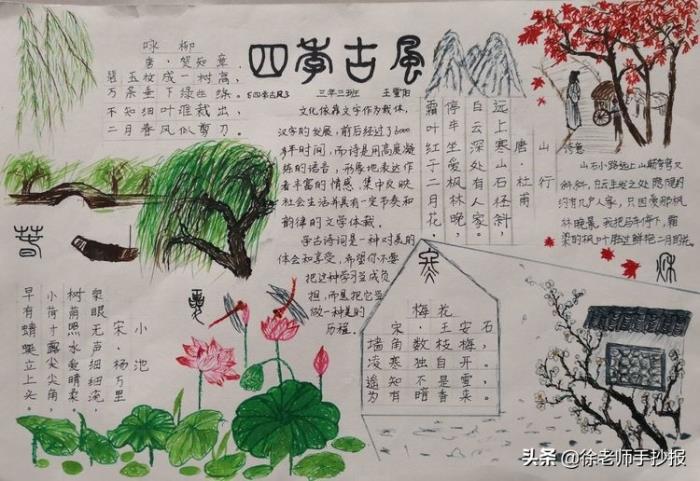 四季古风
《四季古风》 三年三班 王雪阳
咏柳
唐·贺知章
碧玉妆成一树高，
万条垂下绿丝绦。
不知细叶谁裁出，
二月春风似剪刀。
文化依靠文字作为载体，
汉字的发展，前后经过了6000
多年时间，而诗是用高度凝
练的语言，形象地表达作
者丰富的情感，集中反映
社会生活并具有一定节奏和
韵律的文学体裁。
学古诗词是一种对美的
体会和享受，希望你不要
把这种学习当成负
担，而是把它当
做一种美的
历程。
山行
唐·杜甫
远上寒山石径斜，
白云深处有人家。
停车坐爱枫林晚，
霜叶红于二月花。
诗意
山石小路远上山巅弯弯又
斜斜，白云生发之处
约有几户人家，只因爱那枫
林晚景，我把马车停下，霜
染的枫叶胜过鲜艳二月的花
春
夏
秋
冬
小池
宋·杨万里
泉眼无声细细流，
树荫照水爱晴柔。
小荷才露尖尖角，
早有蜻蜓立上头。
梅花
宋·王安石
墙角数枝梅，
凌寒独自开。
遥知不是雪，
为有暗香来。
头条 @徐老师手抄报